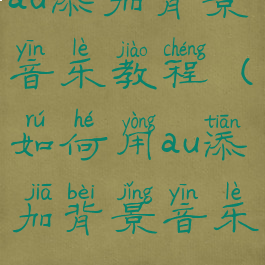 au添加背景
yīn lè jiào chéng
音乐教程（
rú hé yòng tiān
如何用au添
jiā bèi jǐng yīn lè
加背景音乐